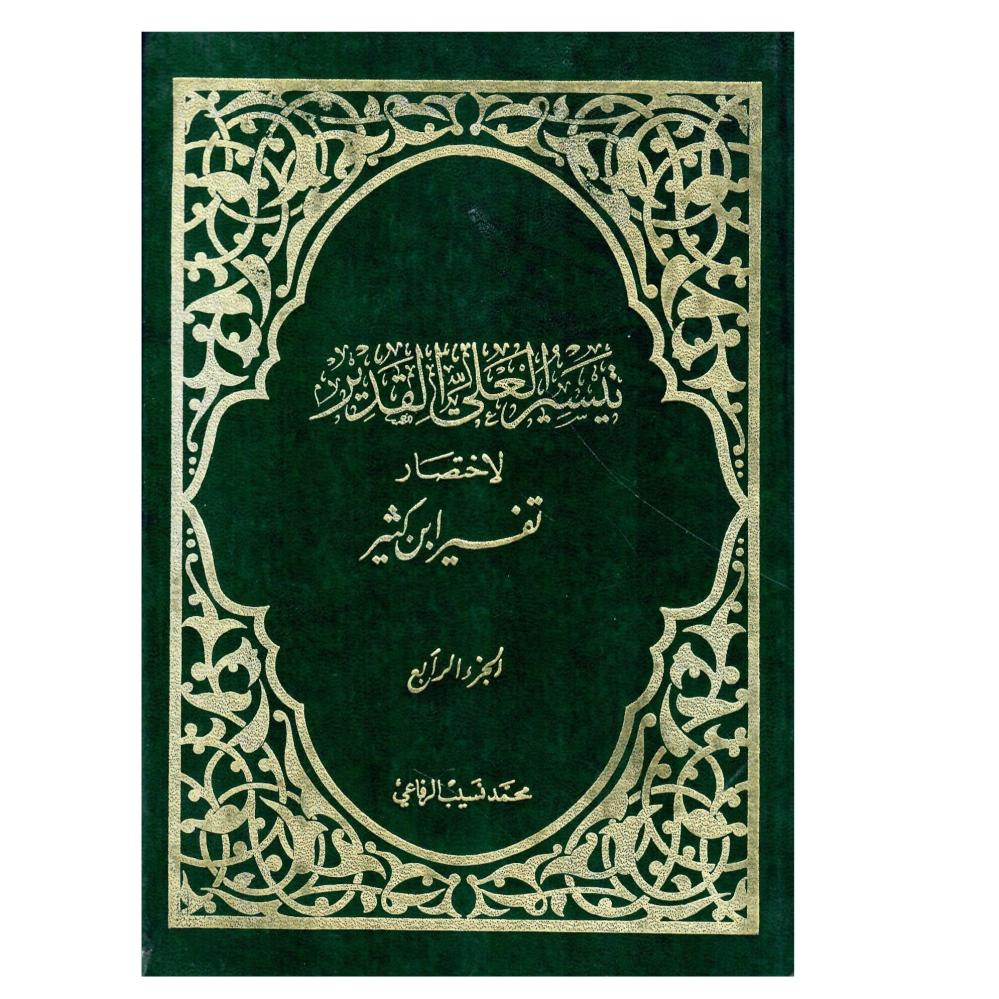 تيسير العلي القدير
لاختصار
تفسير ابن كثير
الجزء الرابع
محمد نسيب الرفاعي